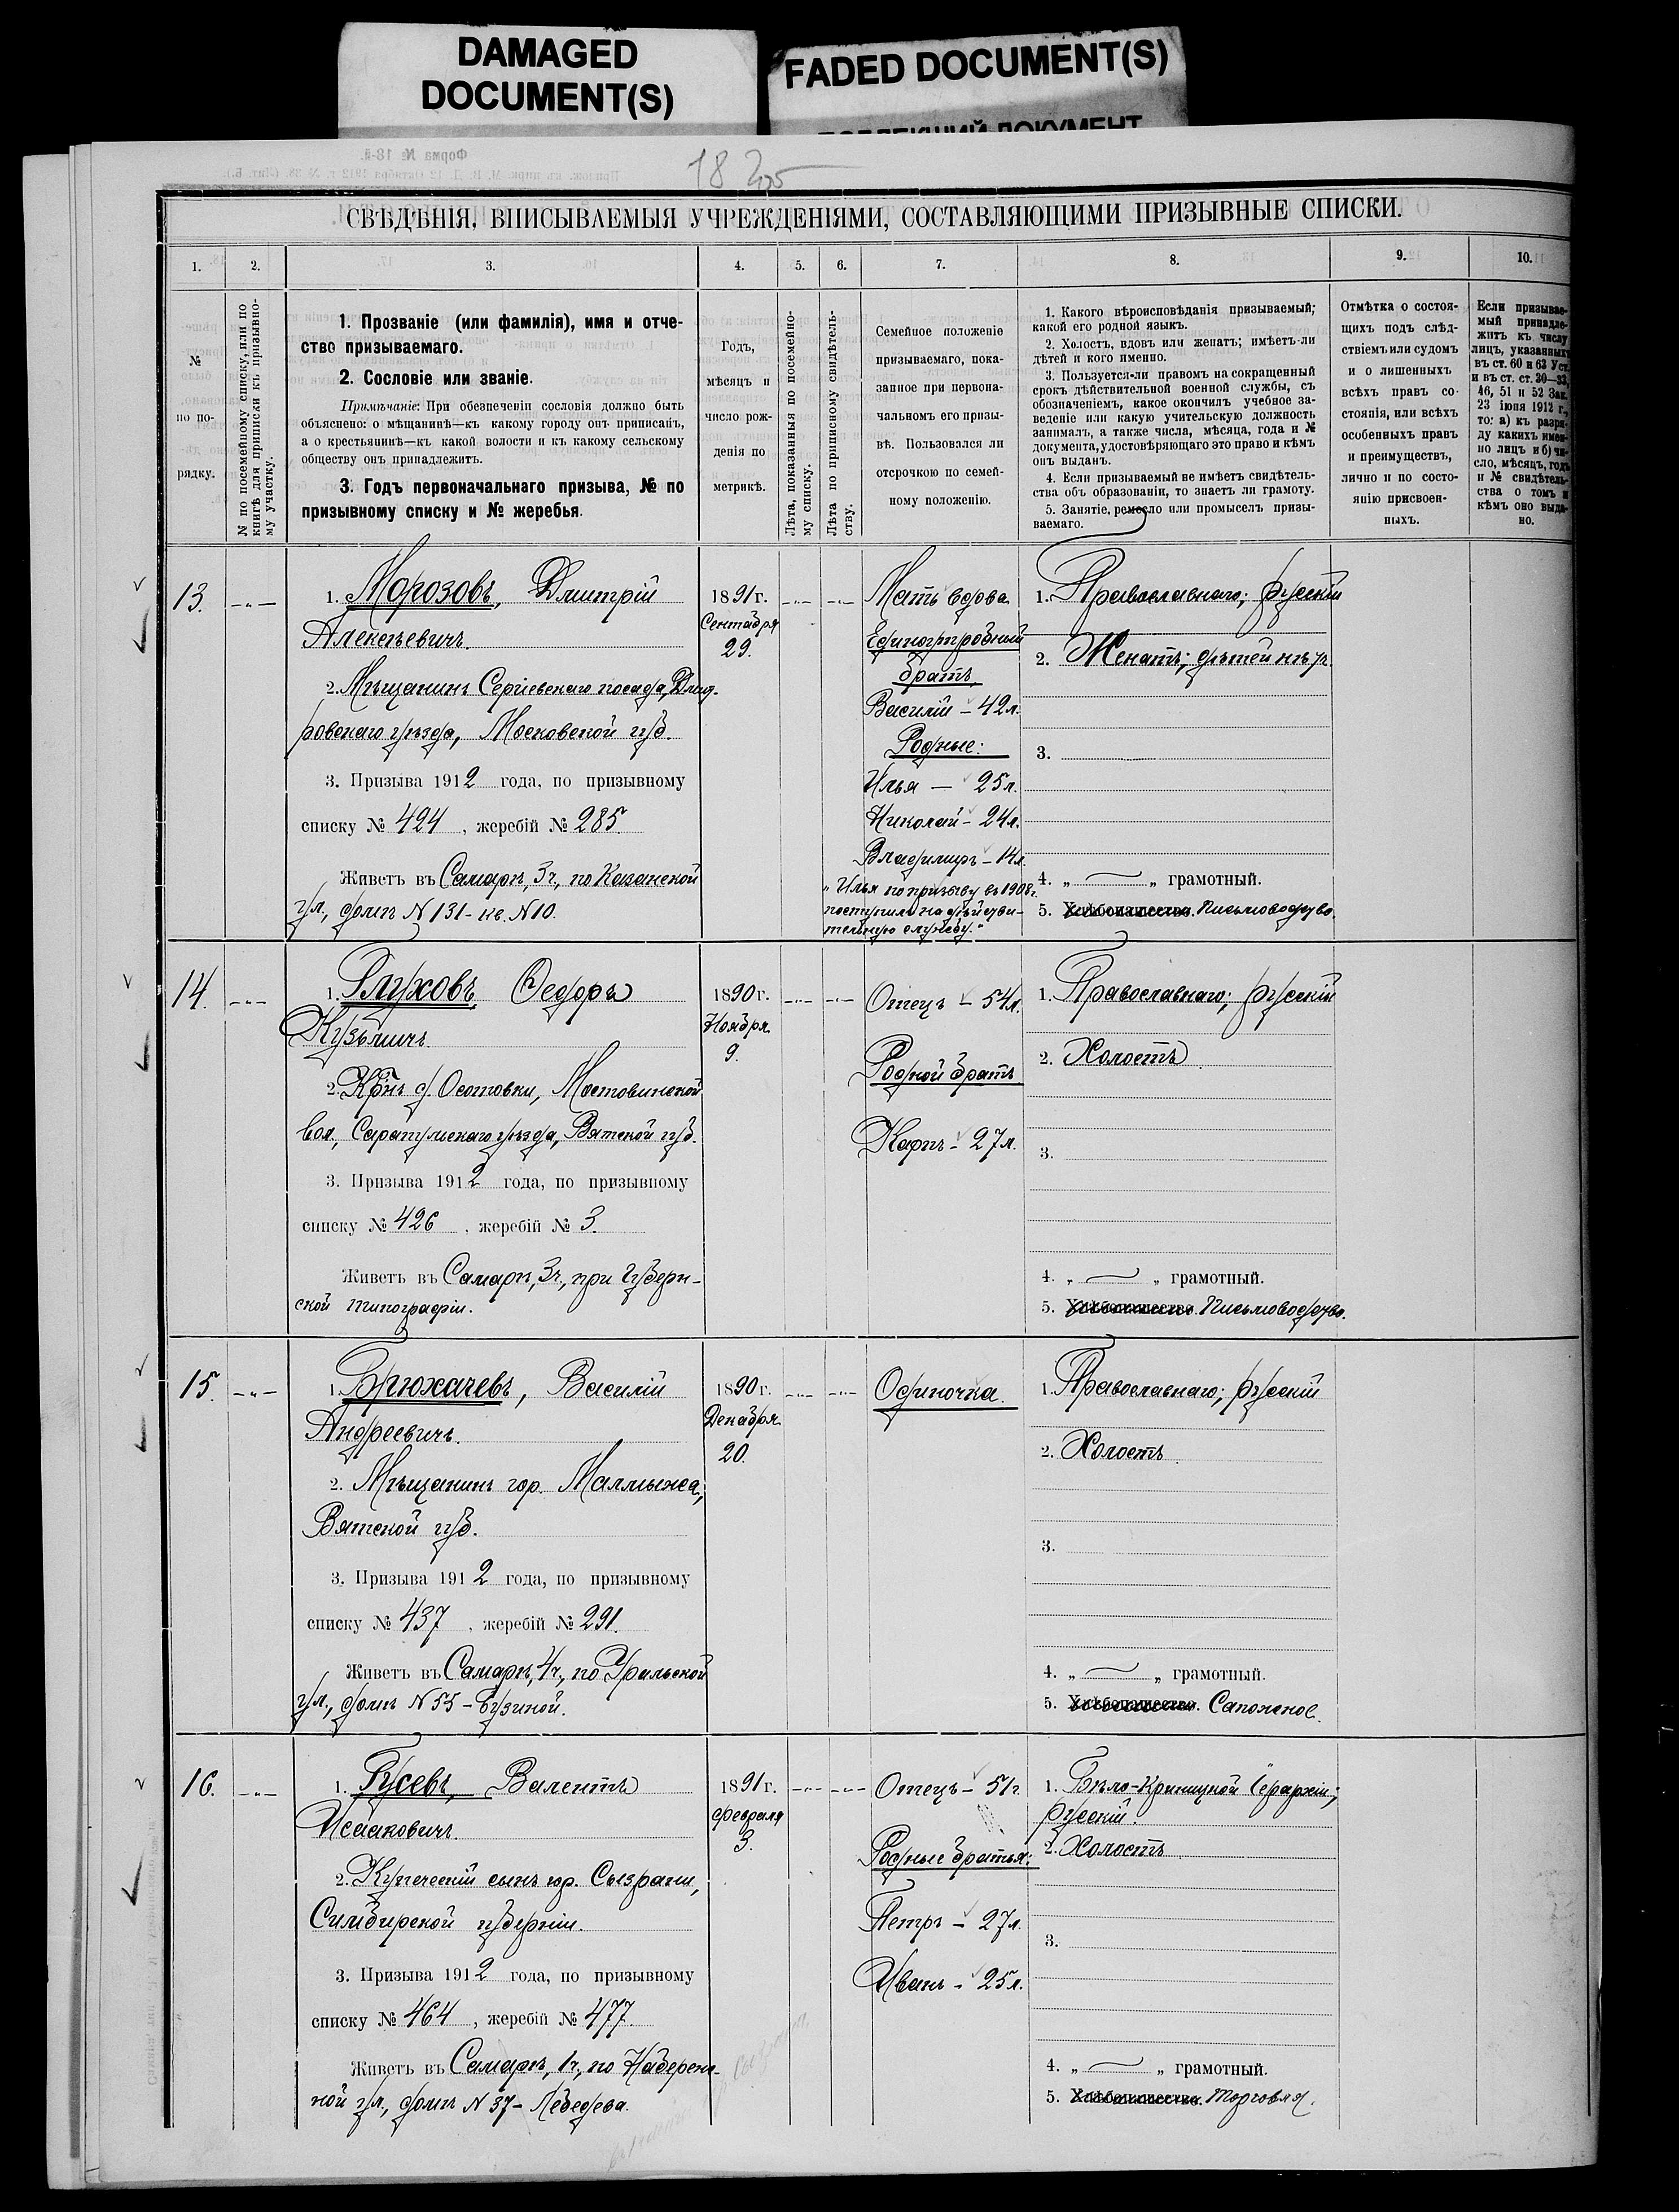 DAMAGED
DOCUMENT(S)
FADED DOCUMENT(S)
18
СВѢДѢНІЯ, ВПИСЫВАЕМЫЯ УЧРЕЖДЕНІЯМИ, СОСТАВЛЯЮЩИМИ ПРИЗЫВНЫЕ СПИСКИ.
1. 2. 3. 4. 5. 6. 7. 8. 9. 10.
№
по по-
рядку.
№ по посемейному списку, или по
книгѣ для приписки къ призывно-
му участку.
1. Прозваніе (или фамилія), имя и отче-
ство призываемаго.
2. Сословіе или званіе.
Примѣчаніе: При обезпеченіи сословія должно быть
объяснено: о мѣщанинѣ—къ какому городу онъ приписанъ,
а о крестьянинѣ—къ какой волости и къ какому сельскому
обществу онъ принадлежитъ.
3. Годъ первоначальнаго призыва, № по
призывному списку и № жеребья.
Годъ,
мѣсяцъ и
число рож-
денія по
метрикѣ.
Лѣта, показанныя по посемейно-
му списку.
Лѣта по приписному свидѣтель-
ству.
Семейное положеніе
призываемаго, пока-
занное при первона-
чальномъ его призы-
вѣ. Пользовался ли
отсрочкою по семей-
ному положенію.
1. Какого вѣроисповѣданія призываемый;
какой его родной языкъ.
2. Холостъ, вдовъ или женатъ; имѣетъ-ли
дѣтей и кого именно.
3. Пользуется-ли правомъ на сокращенный
срокъ дѣйствительной военной службы, съ
обозначеніемъ, какое окончилъ учебное за-
веденіе или какую учительскую должность
занималъ, а также числа, мѣсяца, года и №
документа, удостовѣряющаго это право и кѣмъ
онъ выданъ.
4. Если призываемый не имѣетъ свидѣтель-
ства объ образованіи, то знаетъ ли грамоту.
5. Занятіе, ремесло или промыселъ призы-
ваемаго.
Отмѣтка о состоя-
щихъ подъ слѣд-
ствіемъ или судомъ
и о лишенныхъ
всѣхъ правъ со-
стоянія, или всѣхъ
особенныхъ правъ
и преимуществъ,
лично и по состо-
янію присвоен-
ныхъ.
Если призывае-
мый принадле-
житъ къ числу
лицъ, указанныхъ
въ ст. 60 и 63 Уст.
и въ ст. ст. 30—33,
46, 51 и 52 Зак.
23 іюня 1912 г.,
то: а) къ разря-
ду какихъ имен-
но лицъ и б) чи-
сло, мѣсяцъ, годъ
и № свидѣтель-
ства о томъ и
кѣмъ оно выда-
но.
13.
1. Морозовъ, Дмитрій
Алексѣевичъ.
2. Мѣщанинъ Сергіевскаго посада, Дмит-
ровскаго уѣзда, Московской губ.
3. Призыва 1912 года, по призывному
списку № 424, жеребій № 285.
Живетъ въ Самарѣ, 3ч., по Казанской
ул., домъ N 131 - кв. N 10.
1891г.
Сентября
29.
Мать вдова.
Единоутробный
братъ
Василій - 42л.
Родные:
Илья — 25л.
Николай - 24л.
Владиміръ - 14л.
"Илья по призыву въ 1908г.
поступилъ на дѣйстви-
тельную службу."
1. Православнаго; русскій
2. Женатъ; дѣтей нѣтъ.
3.
4. „ — „ грамотный.
5. Хлѣбопашество. Письмоводство.
14.
1. Глуховъ, Ѳедоръ
Кузьмичъ
2. Кр-нъ д. Осотовки, Мостовинской
вол., Сарапульскаго уѣзда, Вятской губ.
3. Призыва 1912 года, по призывному
списку № 426, жеребій № 3.
Живетъ въ Самарѣ, 3ч., при Губерн-
ской типографіи.
1890г.
Ноября
9.
Отецъ - 54л.
Родной братъ
Карпъ - 27л.
1. Православнаго; русскій
2. Холостъ
3.
4. „ — „ грамотный.
5. Хлѣбопашество. Письмоводство.
15.
1. Брюхачевъ, Василій
Андреевичъ.
2. Мѣщанинъ гор. Малмыжа,
Вятской губ.
3. Призыва 1912 года, по призывному
списку № 437, жеребій № 291.
Живетъ въ Самарѣ, 4ч., по Уральской
ул., домъ N 55 - Бузиной.
1890г.
Декабря
20.
Одиночка.
1. Православнаго; русскій
2. Холостъ
3.
4. „ — „ грамотный.
5. Хлѣбопашество. Сапожное.
16.
1. Гусевъ, Валентъ
Исааковичъ.
2. Купеческій сынъ гор. Сызрани,
Симбирской губерніи.
3. Призыва 1912 года, по призывному
списку № 464, жеребій № 477.
Живетъ въ Самарѣ, 1ч., по Набереж-
ной ул., домъ N 37 - Лебедева.
1891г.
Февраля
3.
Отецъ - 51г.
Родные братья:
Петръ - 27л.
Иванъ - 25л.
1. Бѣло-Криницкой іерархіи;
русскій.
2. Холостъ
3.
4. „ — „ грамотный.
5. Хлѣбопашество. Торговля.